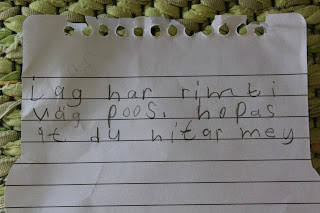 iag har rimti
väg poos. hopas
at du hitar mey